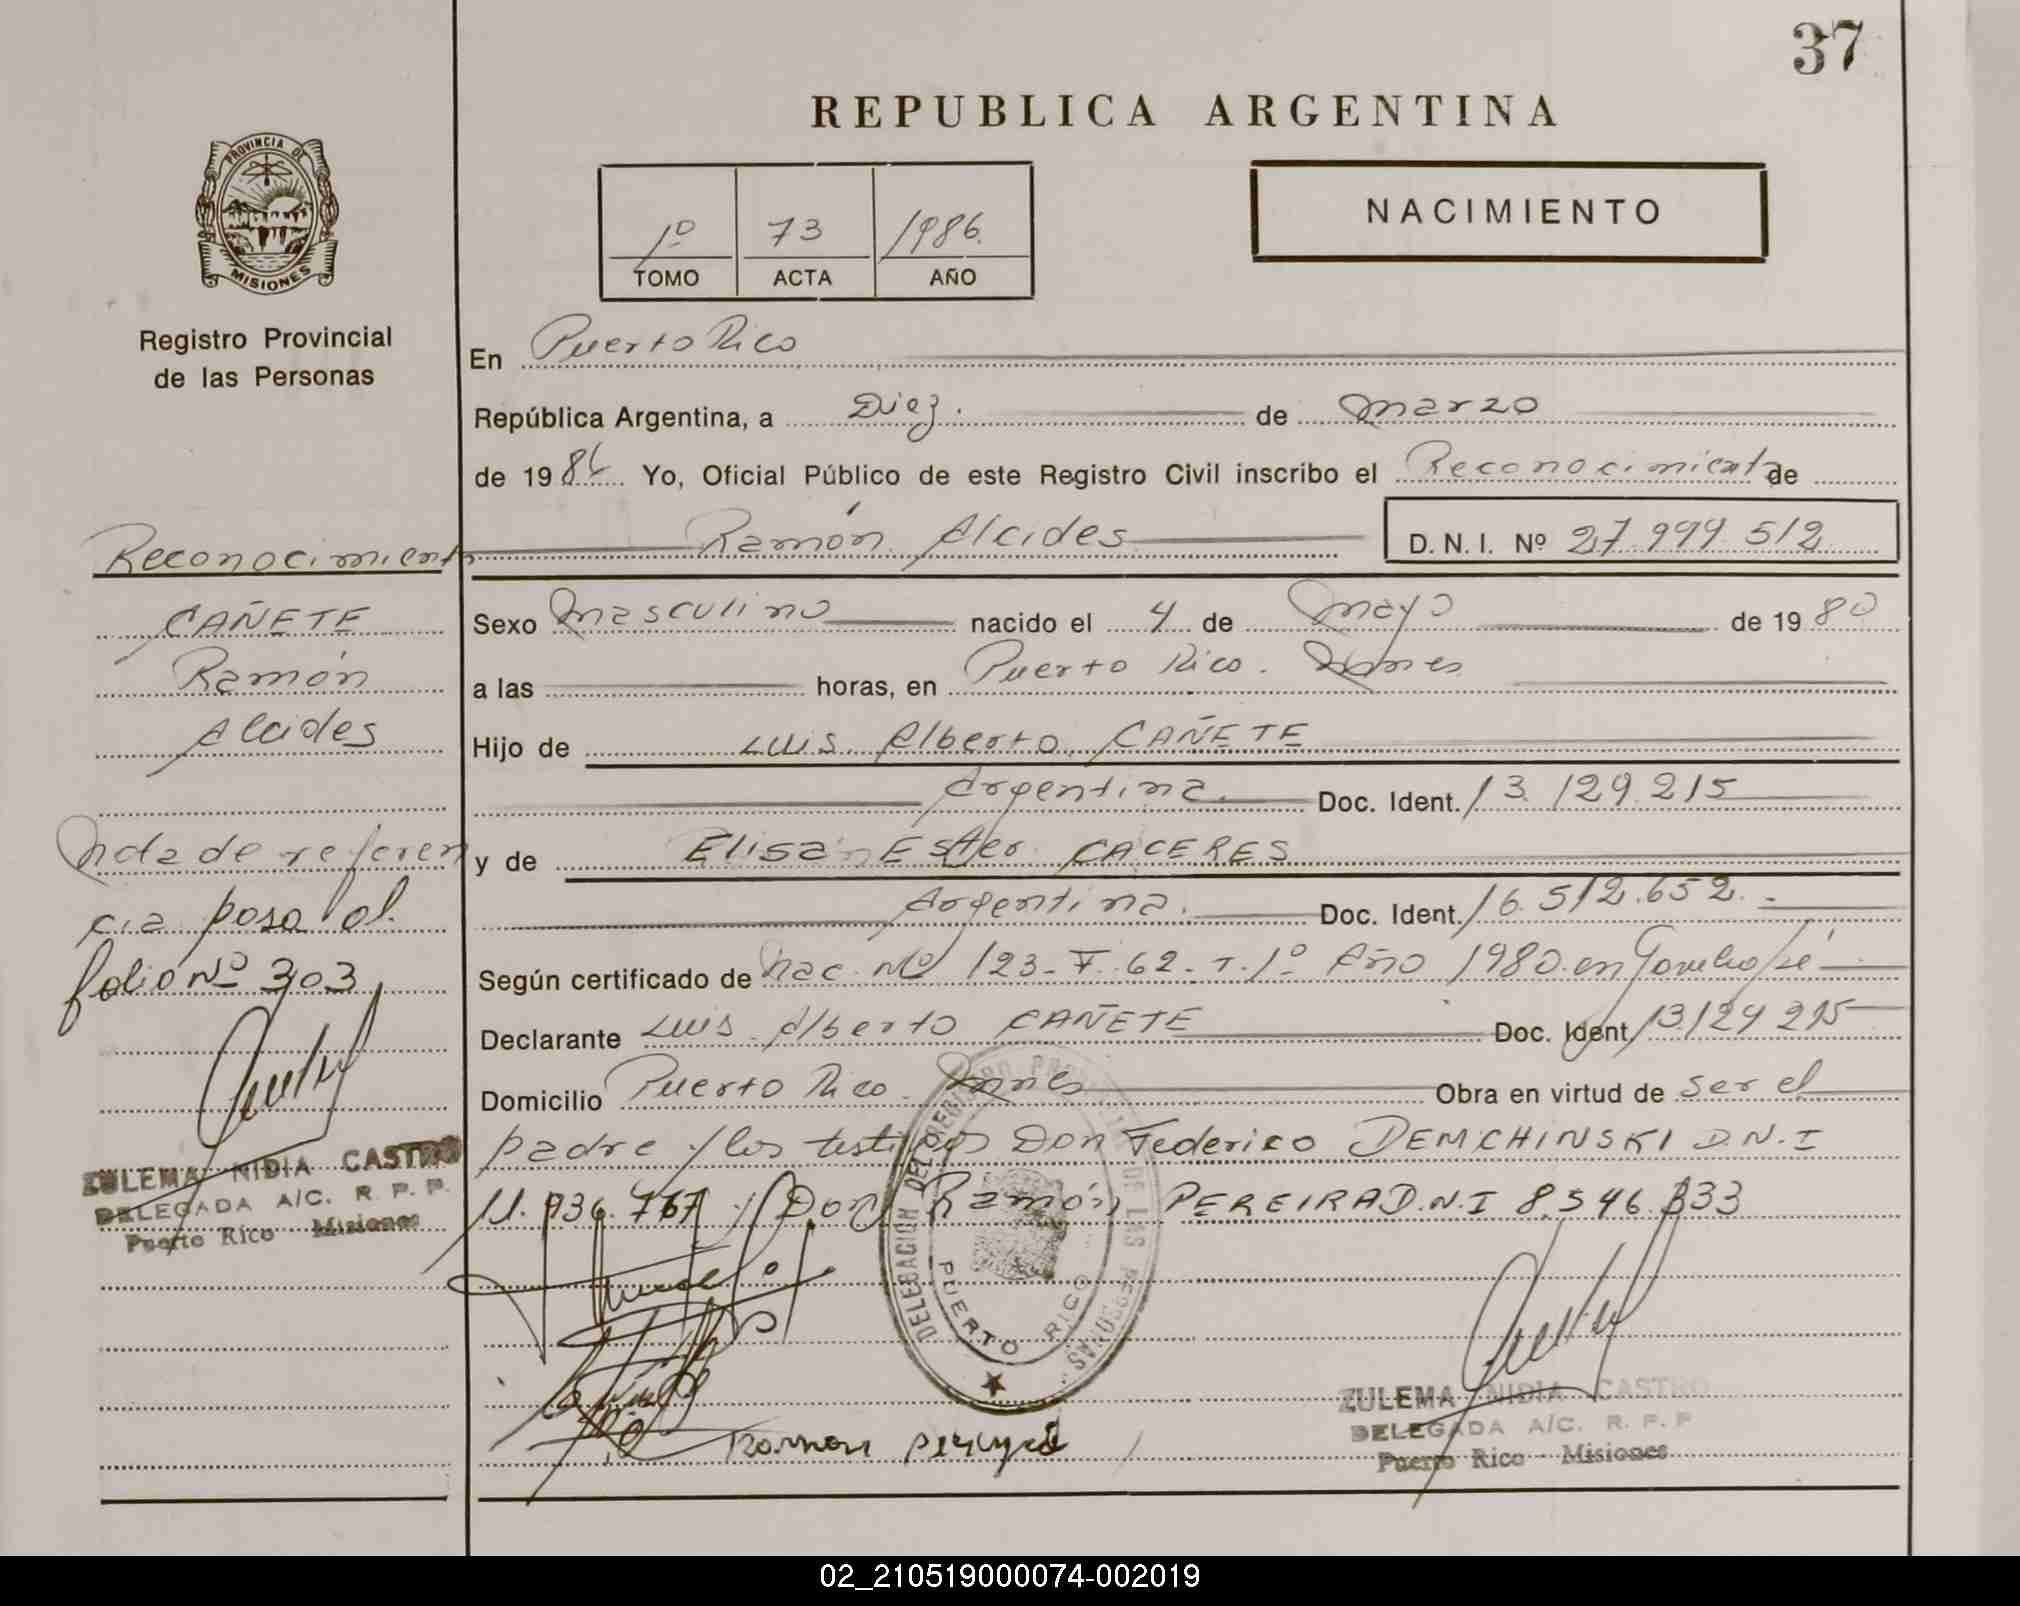 37
REPUBLICA ARGENTINA
PROVINCIA DE
MISIONES
1º 73 1986
TOMO ACTA AÑO
NACIMIENTO
Registro Provincial
de las Personas
En Puerto Rico
República Argentina, a Diez. de Marzo
de 1986 Yo, Oficial Público de este Registro Civil inscribo el Reconocimiento de
Ramón Alcides D. N. I. Nº 27.999.512
Reconocimiento
CAÑETE
Ramón
Alcides
Nota de referen
cia pasa al
folio Nº 303
ZULEMA NIDIA CASTRO
DELEGADA A/C. R. P. P.
Puerto Rico - Misiones
Sexo Masculino nacido el 4 de Mayo de 1980
a las horas, en Puerto Rico. Mnes
Hijo de Luis Alberto CAÑETE
Argentina. Doc. Ident. 13.129.215
y de Elisa Ester CACERES
Argentina. Doc. Ident. 16.512.652.
Según certificado de Nac. Nº 123-F. 62-T.1º Año 1980. en
Declarante Luis Alberto CAÑETE Doc. Ident. 13129215
Domicilio Puerto Rico Mnes Obra en virtud de ser el
padre y los testigos Don Federico DEMCHINSKI D.N.I
11.936.767 y Don Ramón PEREIRA D.N.I 8.546.333
DELEGACION DEL REGISTRO PROVINCIAL DE LAS PERSONAS
PUERTO RICO
Ramon
ZULEMA NIDIA CASTRO
DELEGADA A/C. R. P. P
Puerto Rico - Misiones
02_210519000074-002019